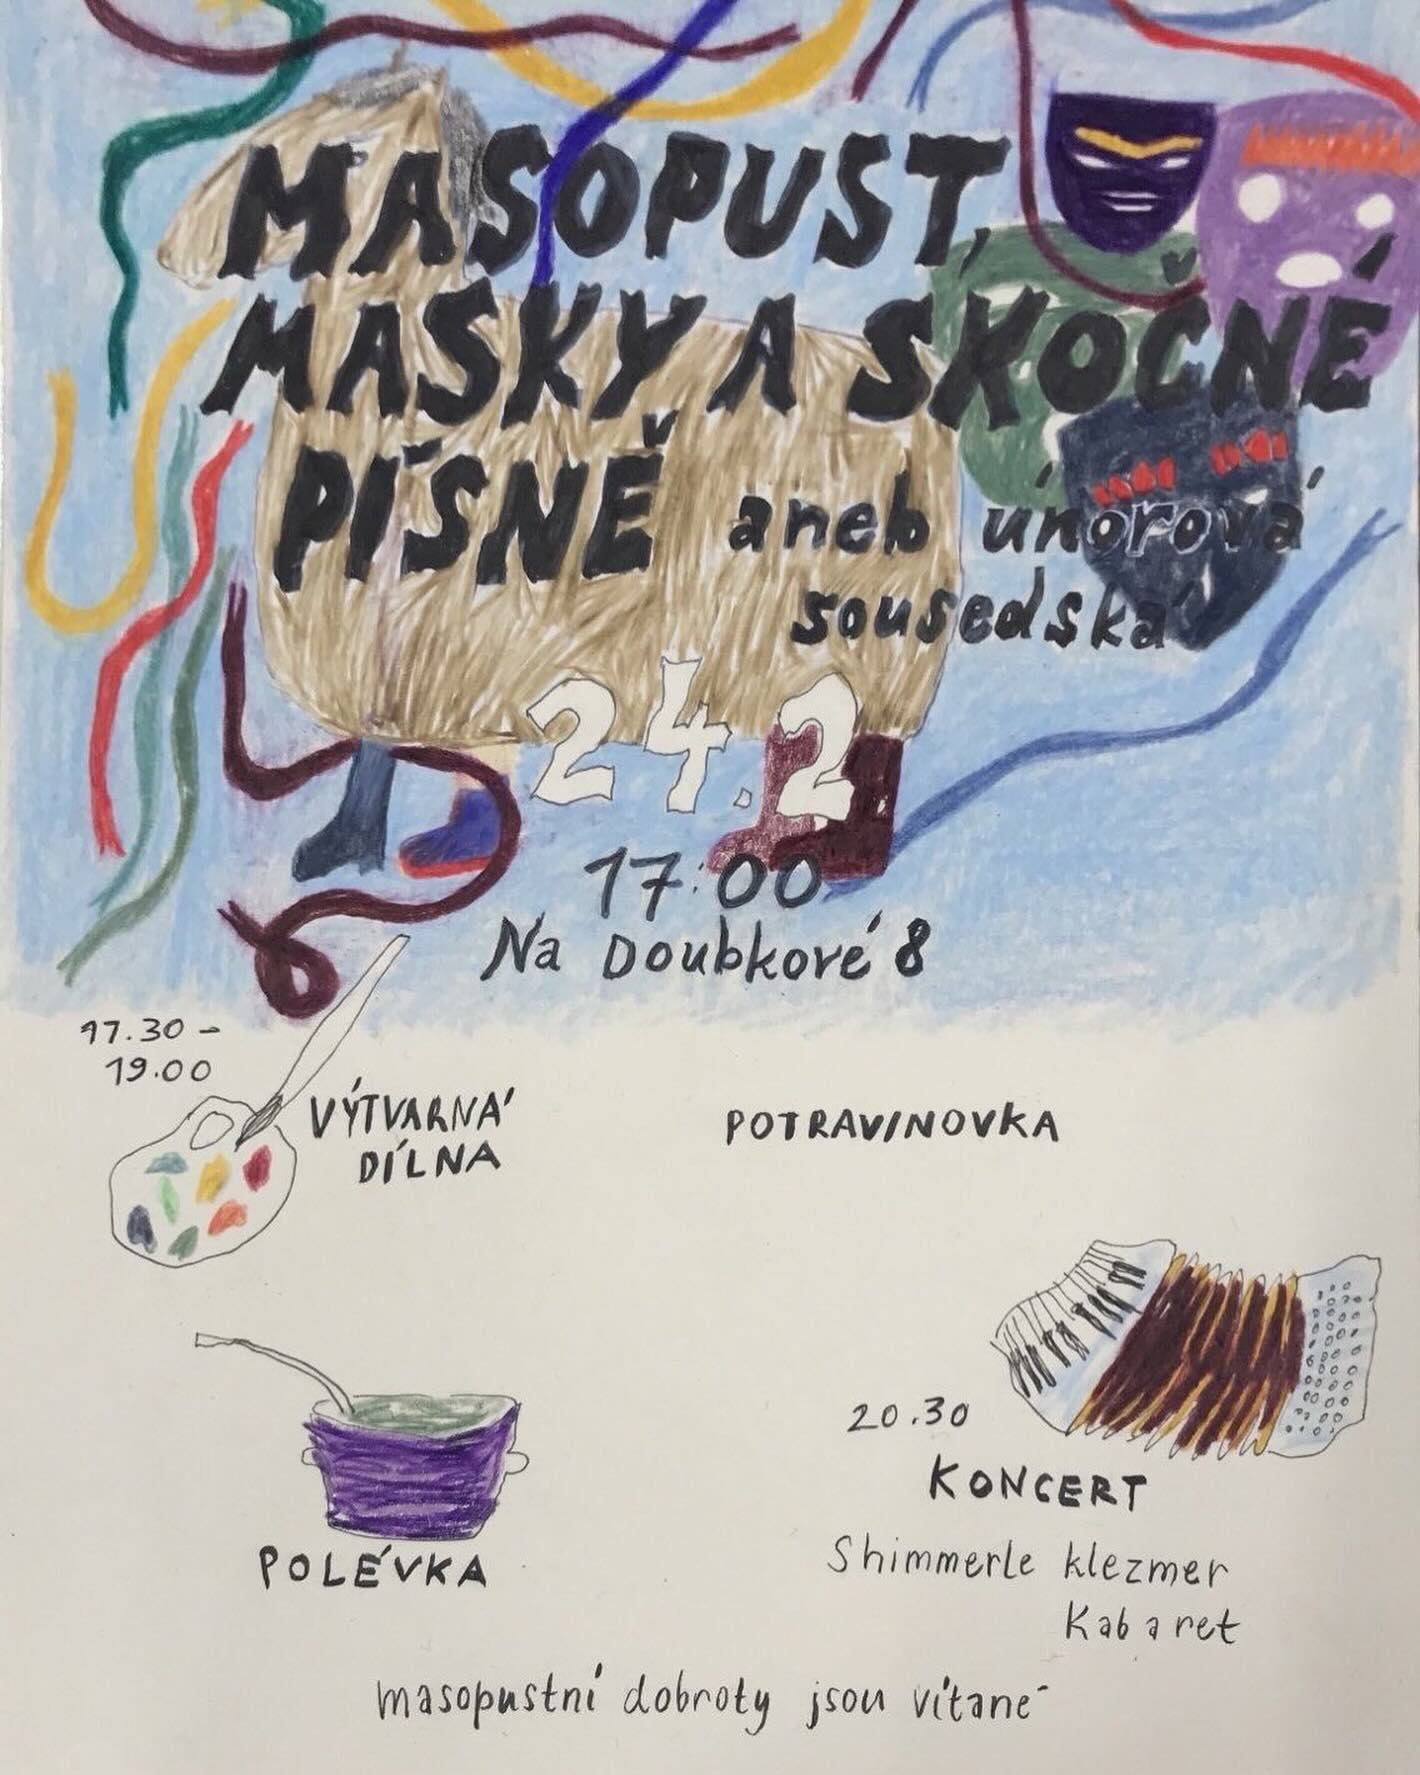 MASOPUST,
MASKY A SKOČNÉ
PÍSNĚ aneb únorová
sousedská
24.2
17:00
Na Doubkové 8
17.30 -
19.00
VÝTVARNÁ
DÍLNA
POTRAVINOVKA
20.30
KONCERT
Shimmerle klezmer
Kabaret
POLÉVKA
masopustní dobroty jsou vítané